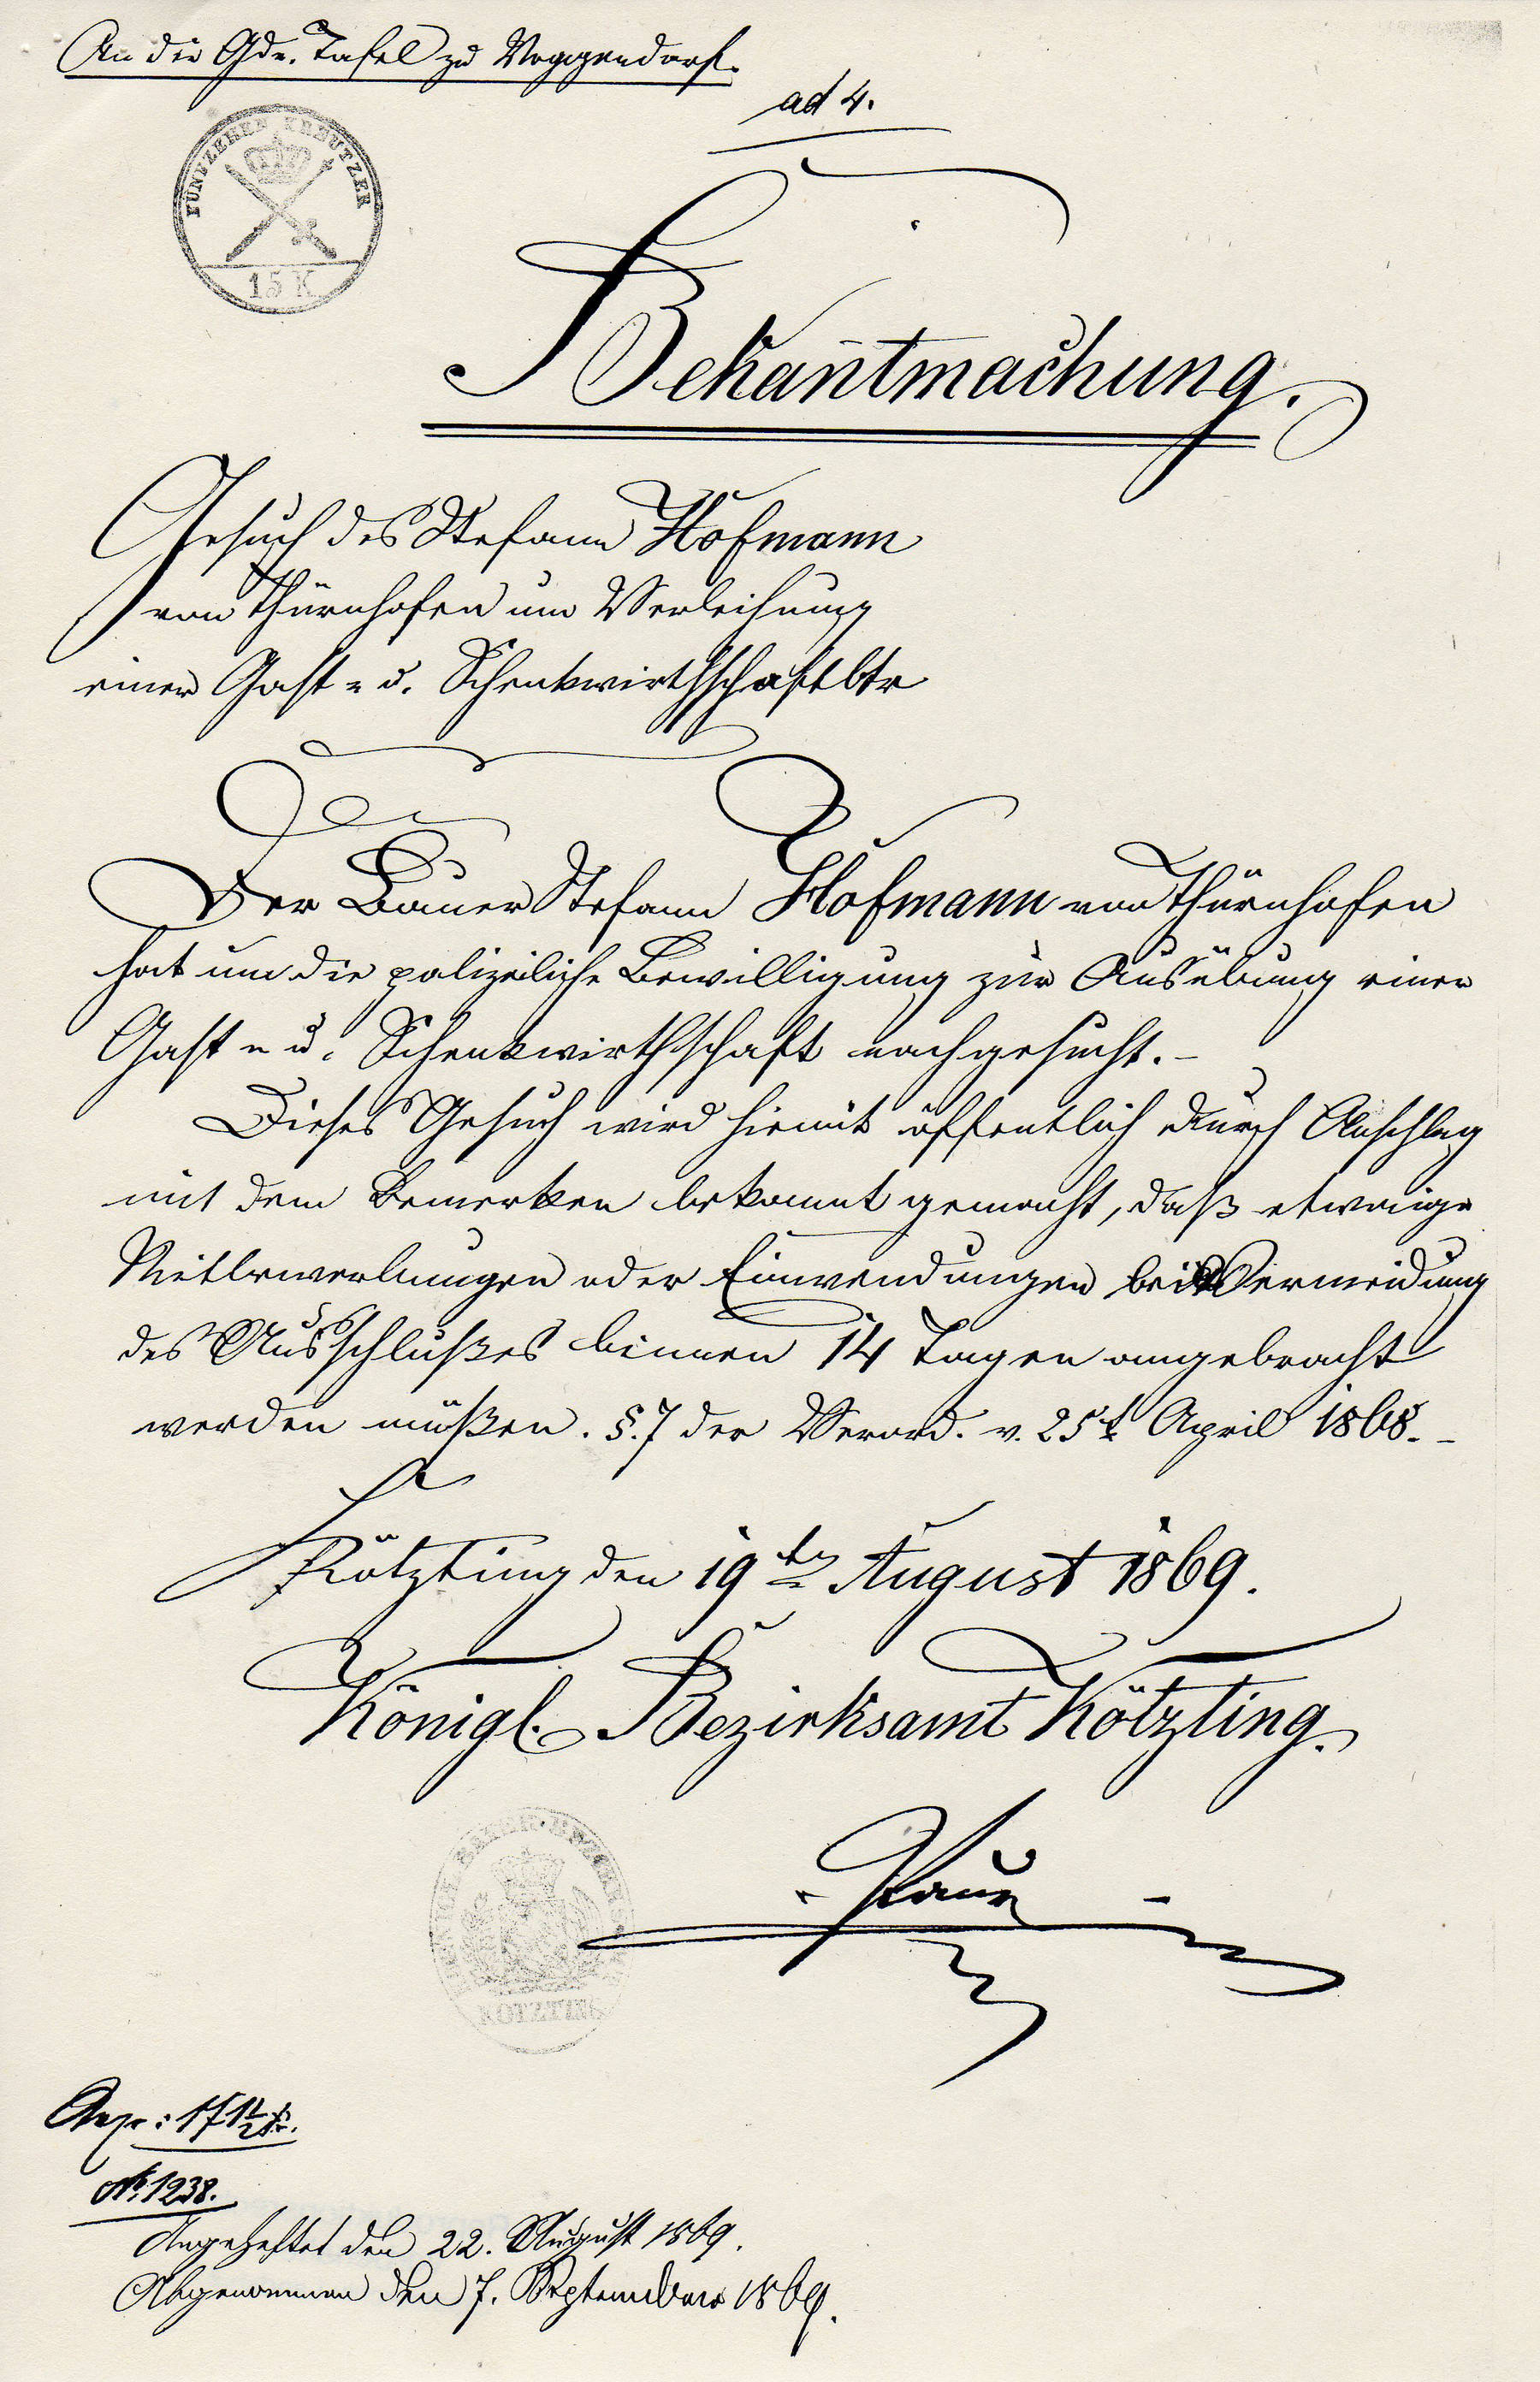 An die Gde. Tafel zu Voggendorf.
ad 4.
FÜNFZEHEN KREUTZER
15 K
Bekan̄tmachung.
Gesuch des Stefann Hofmann
von Thürnhofen um Verleihung
einer Gast- u. Schenkwirthschaft btr
Der Bauer Stefann Hofmann von Thürnhofen
hat um die polizeiliche Bewilligung zur Ausübung einer
Gast- u. Schenkwirthschaft nachgesucht.-
Dieses Gesuch wird hiemit öffentlich durch Anschlag
mit dem Bemerken bekannt gemacht, daß etwaige
Mitbewerbungen oder Einwendungen bei Vermeidung
des Ausschlußes binnen 14 Tagen angebracht
werden müßen. §.7 der Verord. v. 25t April 1868.-
Kötzting den 19ten August 1869.
Königl. Bezirksamt Kötzting.
KÖTZTING
No. 1238.
Angeheftet den 22. August 1869.
Abgenommen den 7. September 1869.